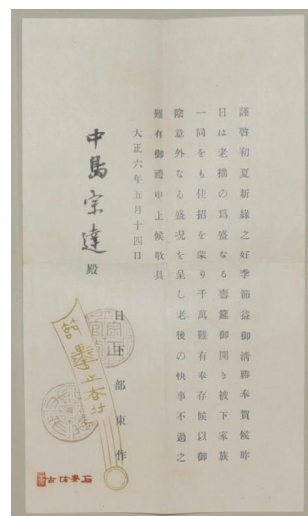 謹啓初夏新緑之好季節益御清勝奉賀候昨
日は老拙の爲盛なる壽筵御開き被下家族
一同をも佳招を蒙り千萬難有奉存候以御
陰意外なる盛况を呈し老後の快事不過之
難有御禮申上候敬具
大正六年五月十四日
日下部東作
中島宗達殿